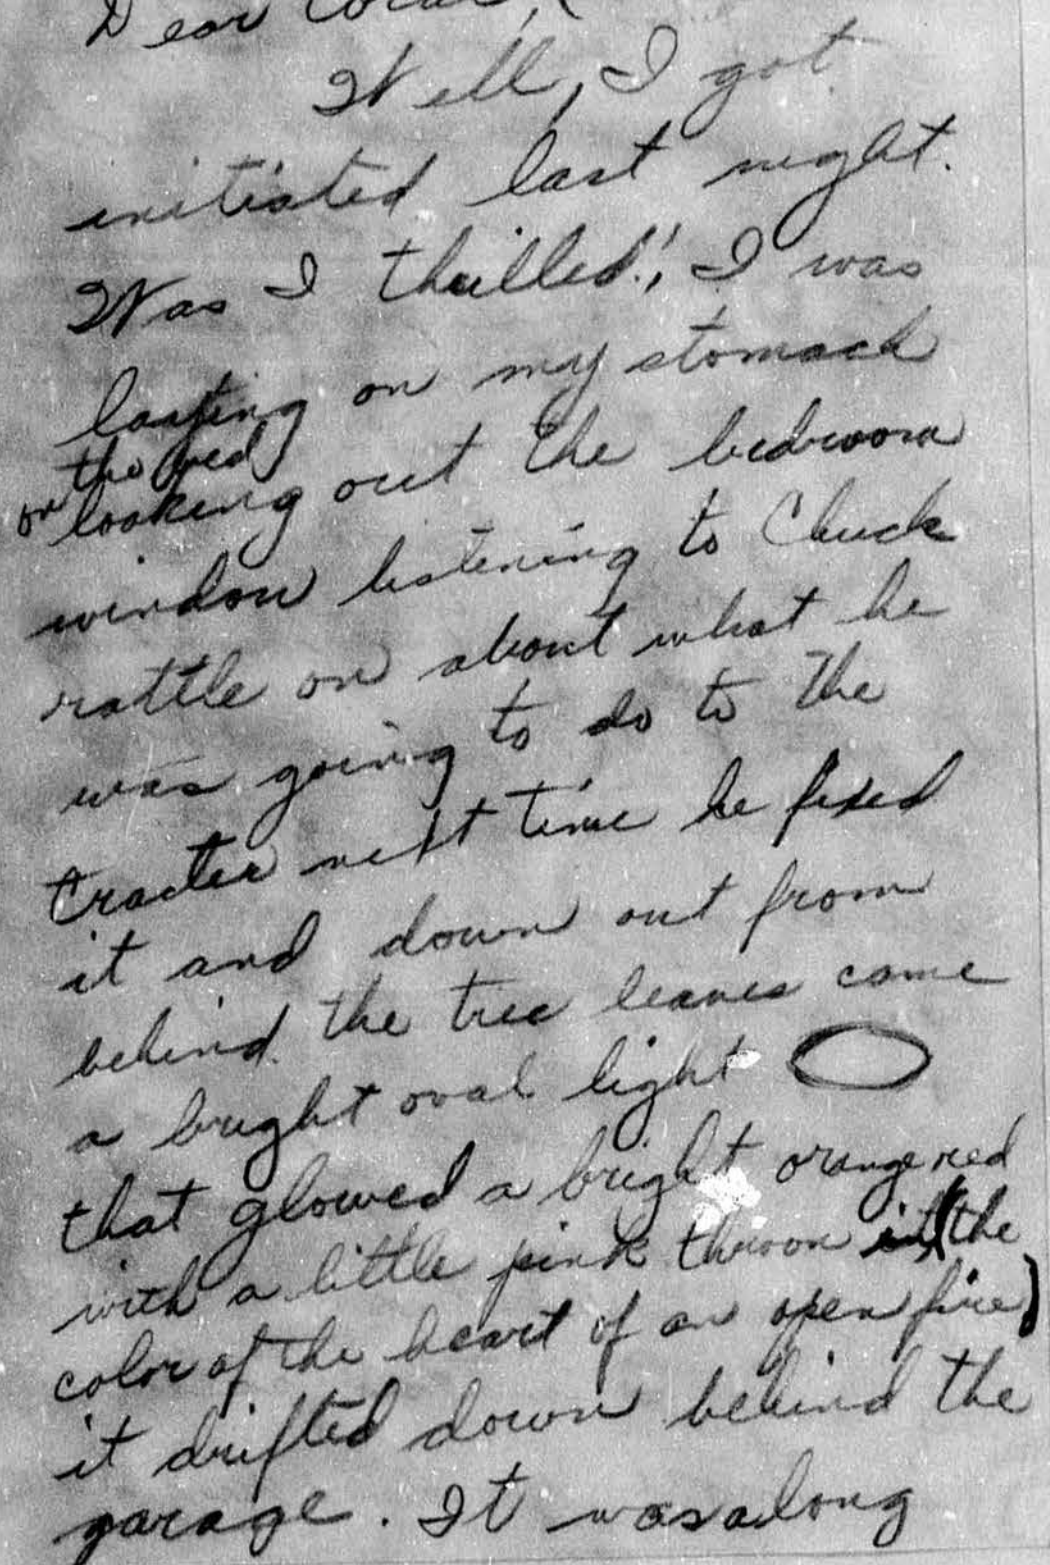 Dear Coral,
Well, I got
initiated last night.
Was I thrilled!, I was
on my stomach
on the bed
looking out the bedroom
window listening to Chuck
rattle on about what he
was going to do to the
tracter next time he fixed
it and down out from
behind the tree leaves came
a bright oval light
that glowed a bright orange red
with a little pink thrown in (the
color of the heart of an open fire)
it drifted down behind the
garage. It was along